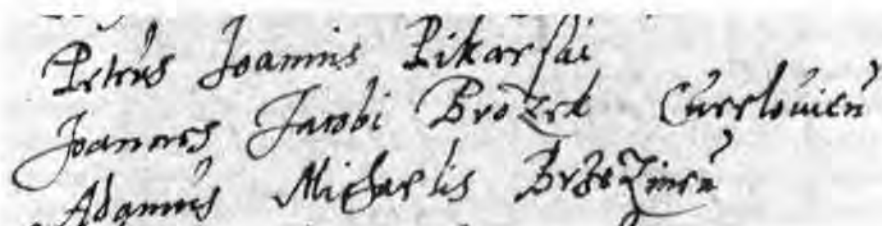 Petrus Joannis Pikarski
Joannes Jacobi Brozek Curelovien
Adamus Michaelis Brzezinen